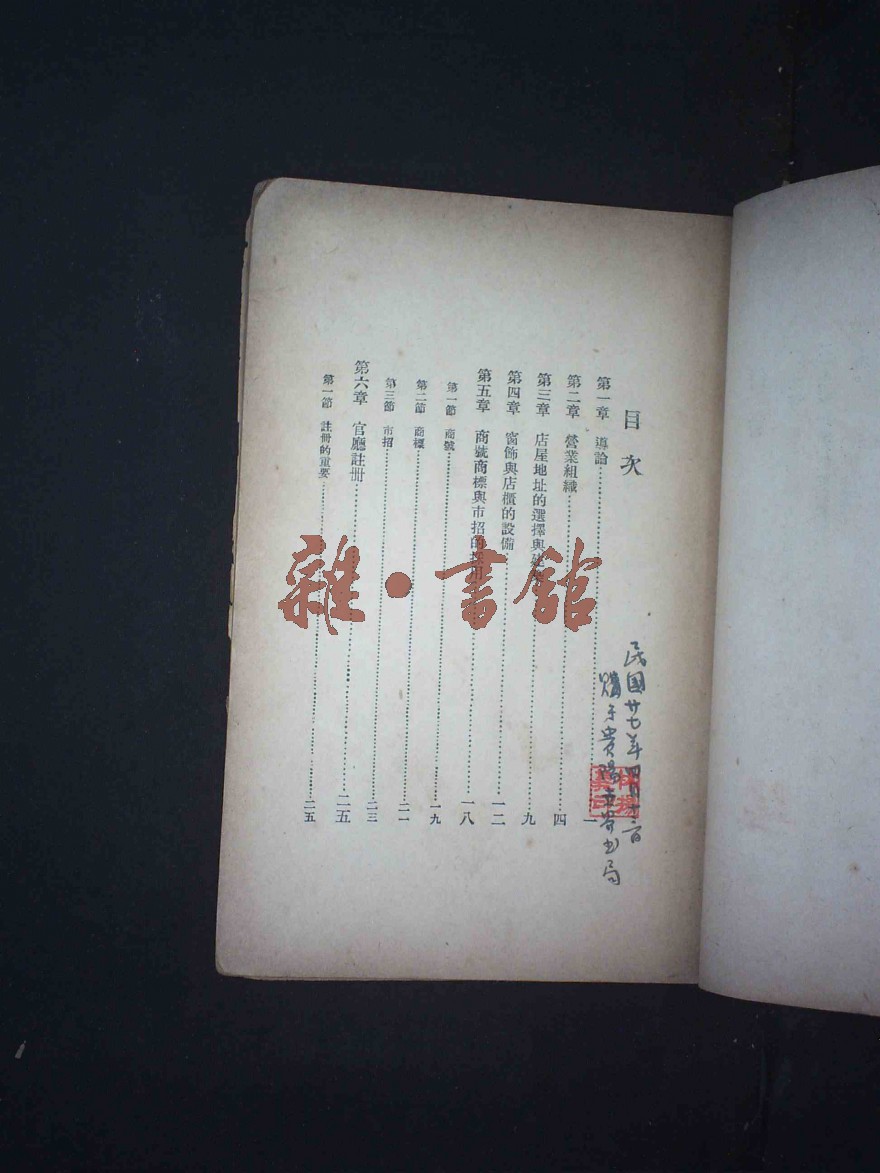 目次
第一章 導論 一
第二章 營業組織 四
第三章 店屋地址的選擇與建築 九
第四章 窗飾與店櫃的設備 一二
第五章 商號商標與市招的採用 一八
第一節 商號 一九
第二節 商標 二一
第三節 市招 二三
第六章 官廳註冊 二五
第一節 註冊的重要 二五
民国廿七年四月十二日
購于貴陽 書局
雜·書館